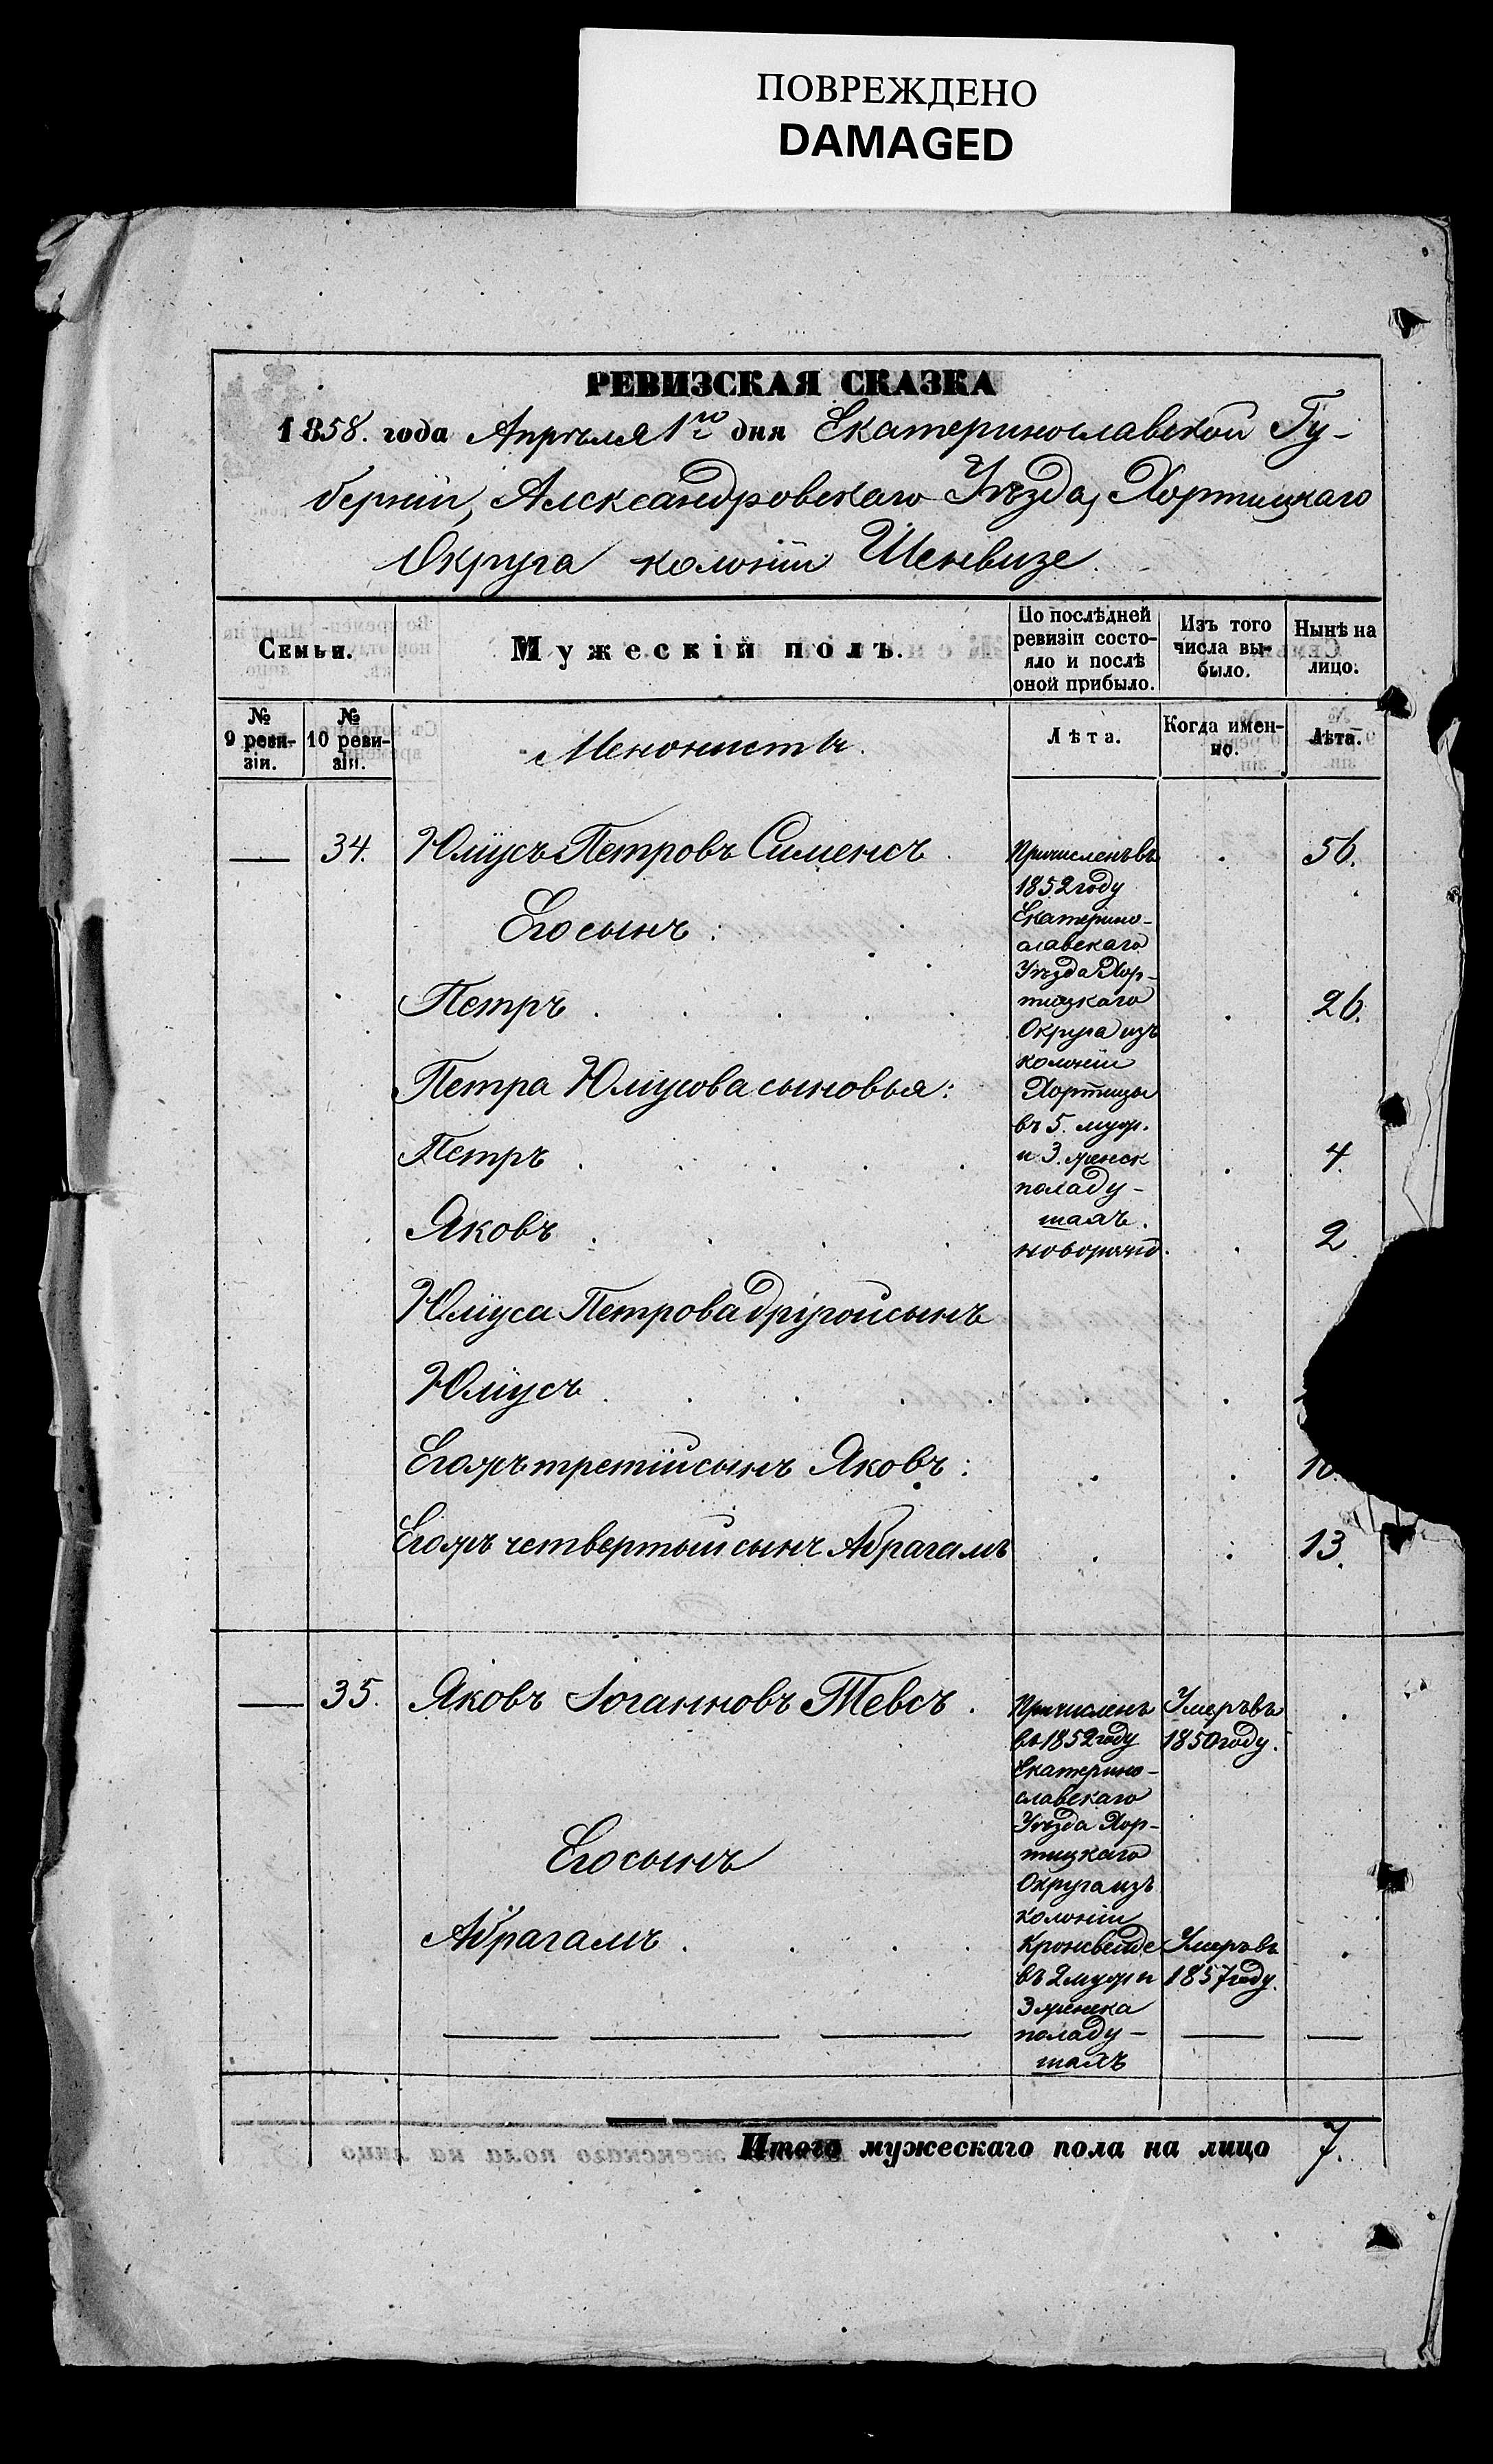 ПОВРЕЖДЕНО
DAMAGED
РЕВИЗСКАЯ СКАЗКА
1858. года Апрѣля 1го дня Екатеринославской Гу-
берніи, Александровскаго Уѣзда, Хортицкаго
Округа колоніи Шенвизе.
Семьи.
Мужескій полъ.
По послѣдней
ревизіи состо-
яло и послѣ
оной прибыло.
Изъ того
числа вы-
было.
Нынѣ на
лицо.
№
9 реви-
зіи.
№
10 реви-
зіи.
Менонисты.
Лѣта.
Когда имен-
но.
Лѣта.
— 34. Юліусъ Петровъ Сименсъ 56.
Причисленъ въ
1852 году
Екатерино-
славскаго
Уѣзда Хор-
тицкаго
Округа изъ
колоніи
Хортицы
въ 5. муж.
и 3. женск
пола ду-
шахъ.
Его сынъ:
Петръ 26.
Петра Юліусова сыновья:
Петръ 4.
Яковъ новорожд. 2
Юліуса Петрова другой сынъ
Юліусъ
Егожъ третій сынъ Яковъ:
Егожъ четвертый сынъ Абрагамъ 13.
— 35. Яковъ Іоганновъ Тевсъ
Причисленъ
въ 1852 году
Екатерино-
славскаго
Уѣзда Хор-
тицкаго
Округа изъ
колоніи
Кронсвейде
въ 2 муж и
3 женска
пола ду-
шахъ
Умеръ въ
1850 году.
Его сынъ
Абрагамъ
Умеръ въ
1857 году.
Итого мужескаго пола на лицо 7.